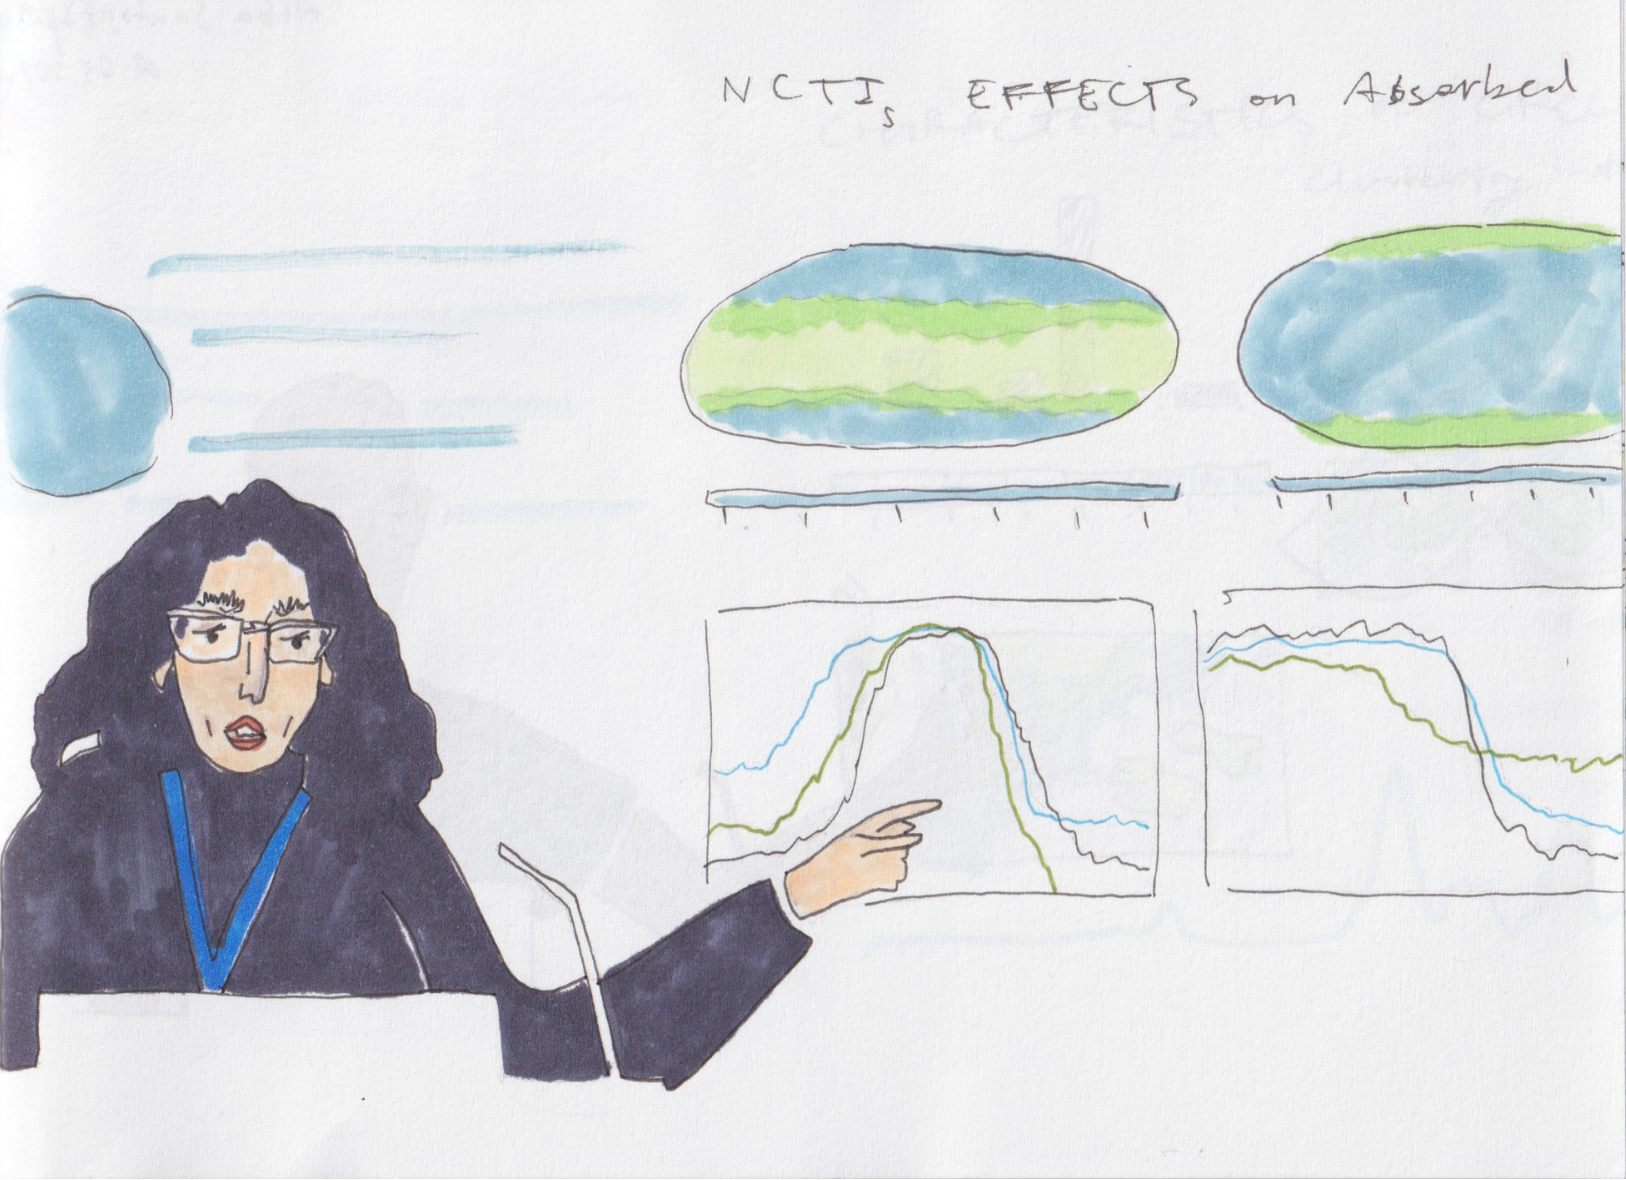 NCTIs EFFECTS on Absorbed